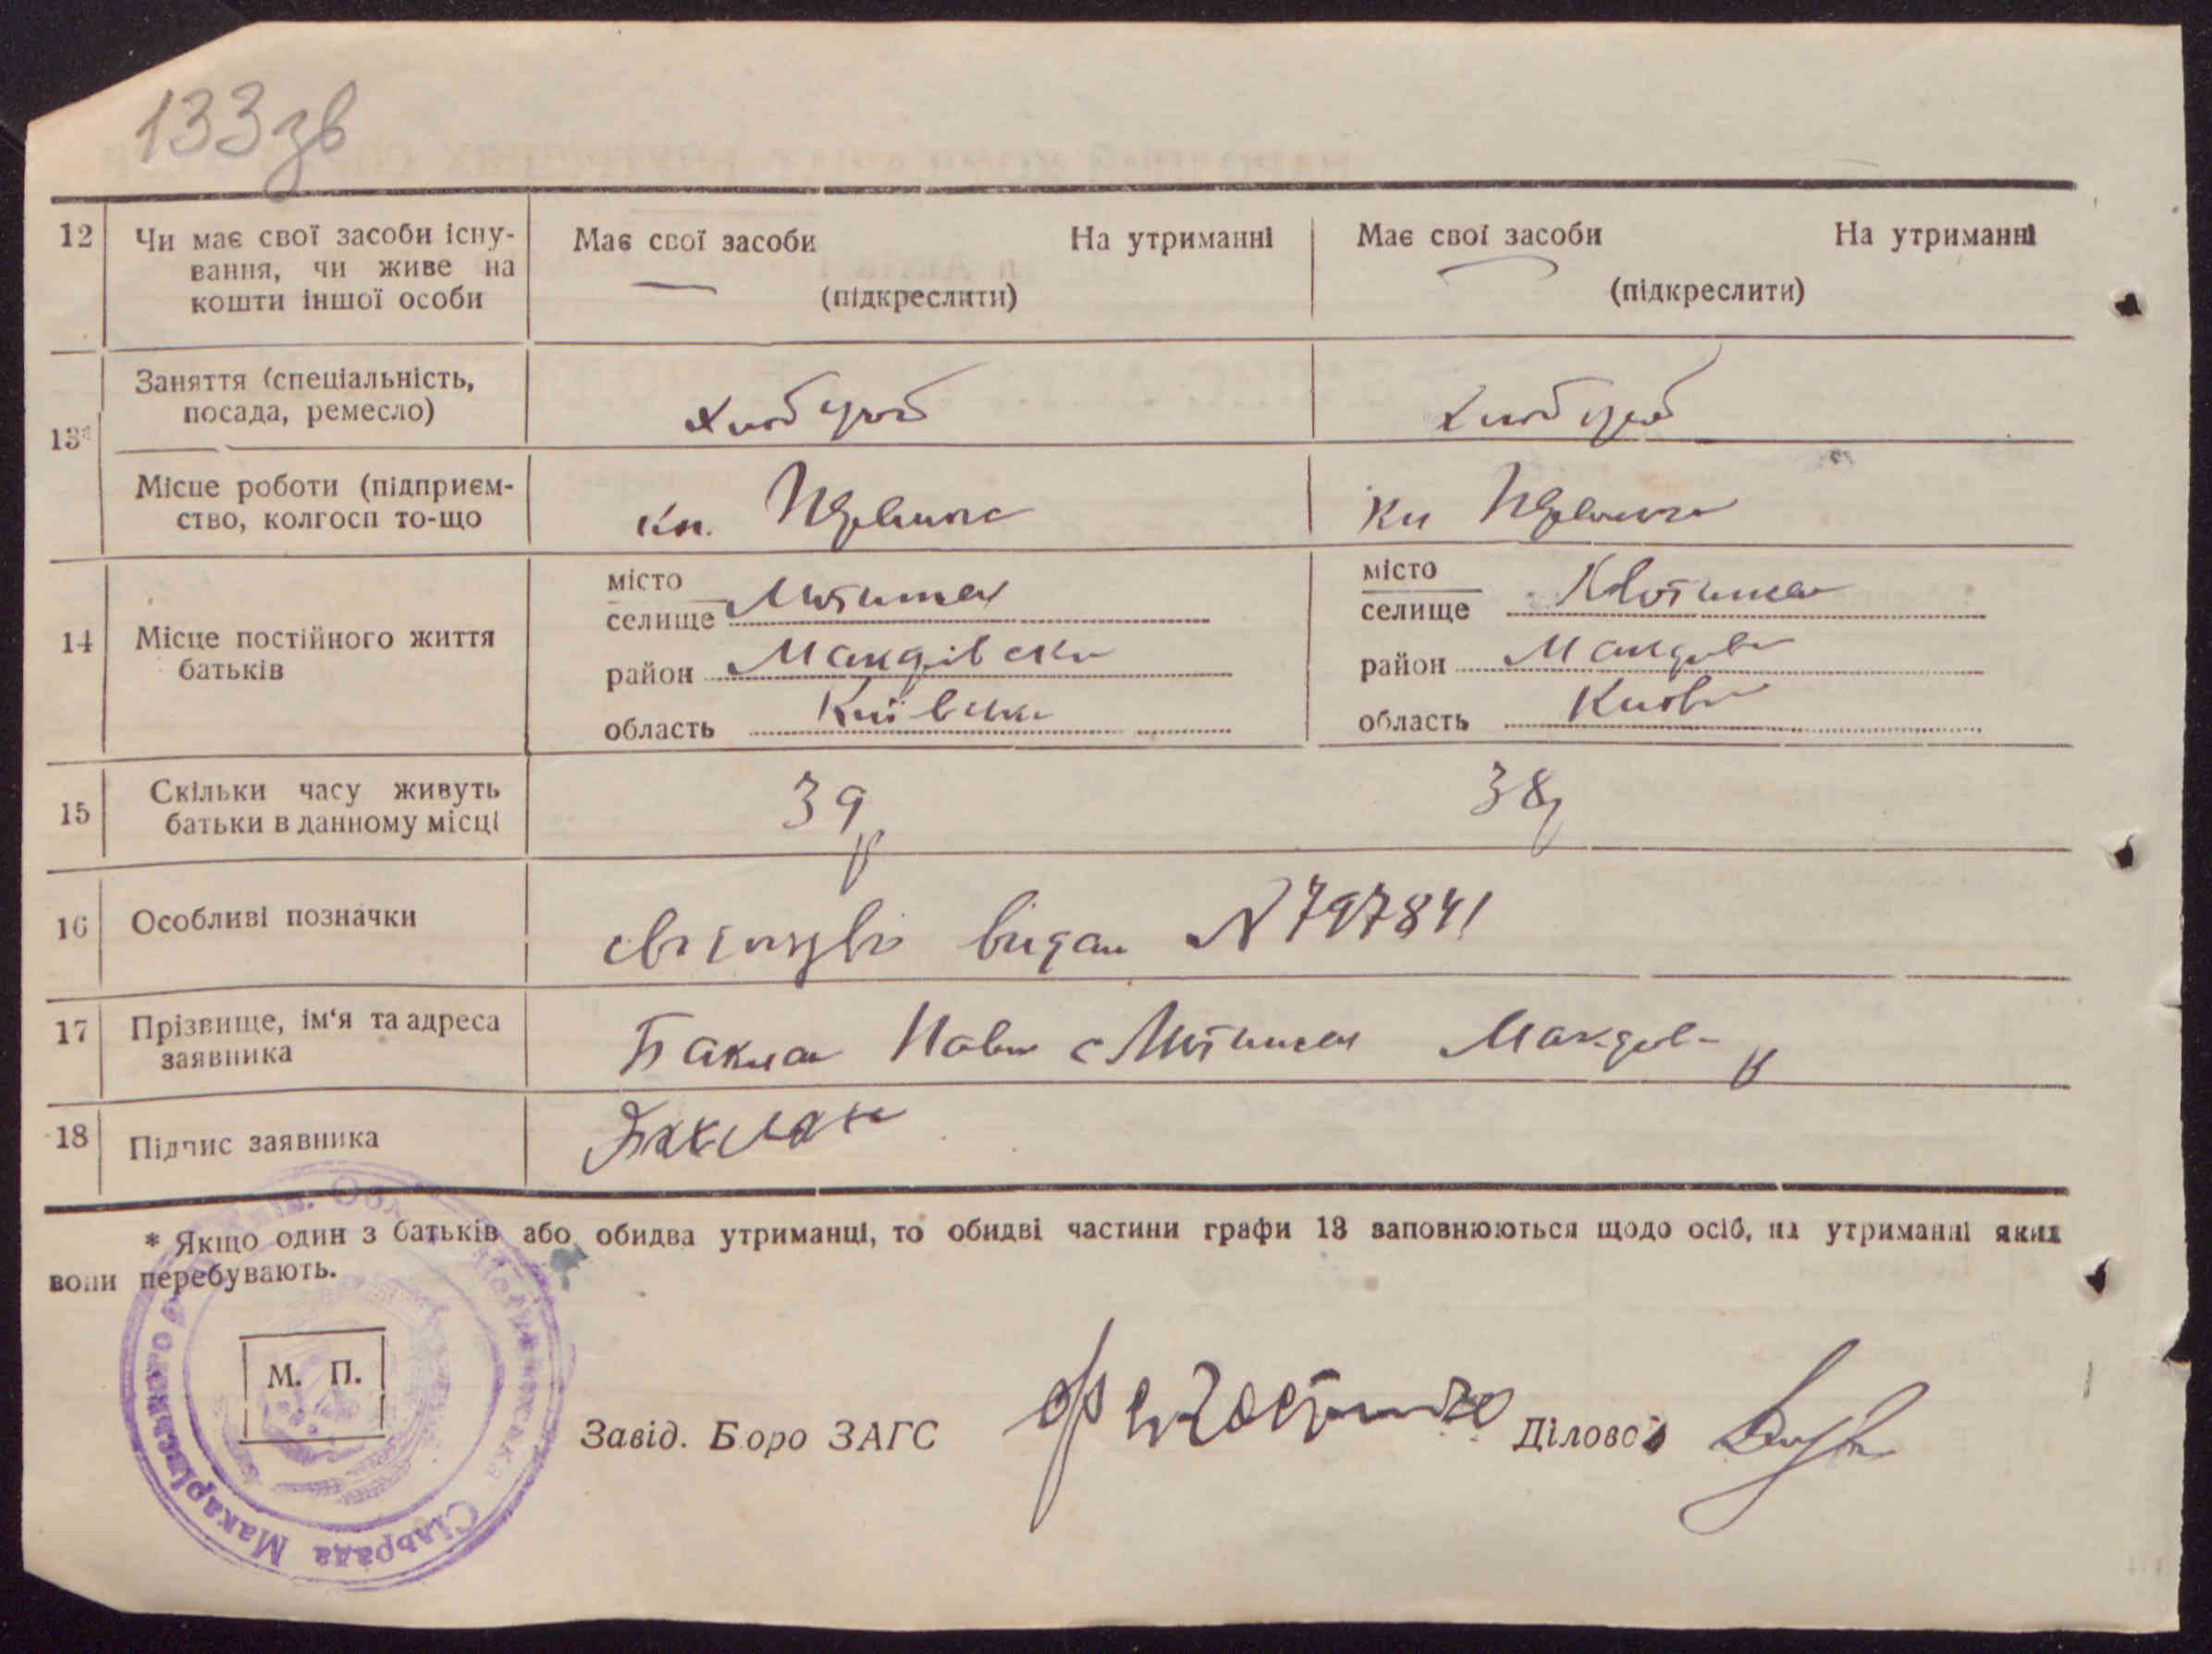 133зв
12 Чи має свої засоби існу- Має свої засоби На утриманні Має свої засоби На утриманні
вання, чи живе на
кошти іншої особи (підкреслити) (підкреслити)
Заняття (спеціальність,
посада, ремесло) хлібороб хлібороб
13*
Місце роботи (підприєм-
ство, колгосп то-що кп. кп
місто місто
селище Мотижин селище Мотижин
14 Місце постійного життя
батьків район Макарівськ район Макарів
область Київськ область Київ
15 Скільки часу живуть
батьки в данному місці 39 р 38 р
16 Особливі позначки свідоцтво видан N 797841
17 Прізвище, ім‘я та адреса
заявника Баклан с Мотижин Макарів р
18 Підпис заявника Баклан
* Якщо один з батьків або обидва утриманці, то обидві частини графи 13 заповнюються щодо осіб, на утриманні яких
вони перебувають.
М. П.
Завід. Бюро ЗАГС Діловод
Сільрада Макарівського